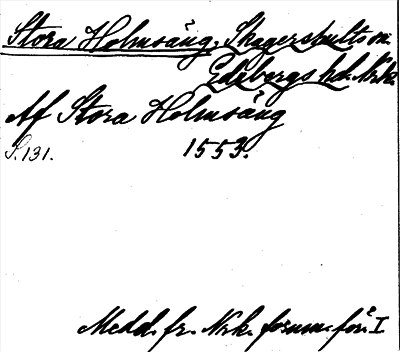 Stora Holmsäng, Skagershults sn.
Edsbergs hd. Nrk.
Af Stora Holmsäng
S. 131. 1553.
Medd. fr. Nrk. fornm.-för. I